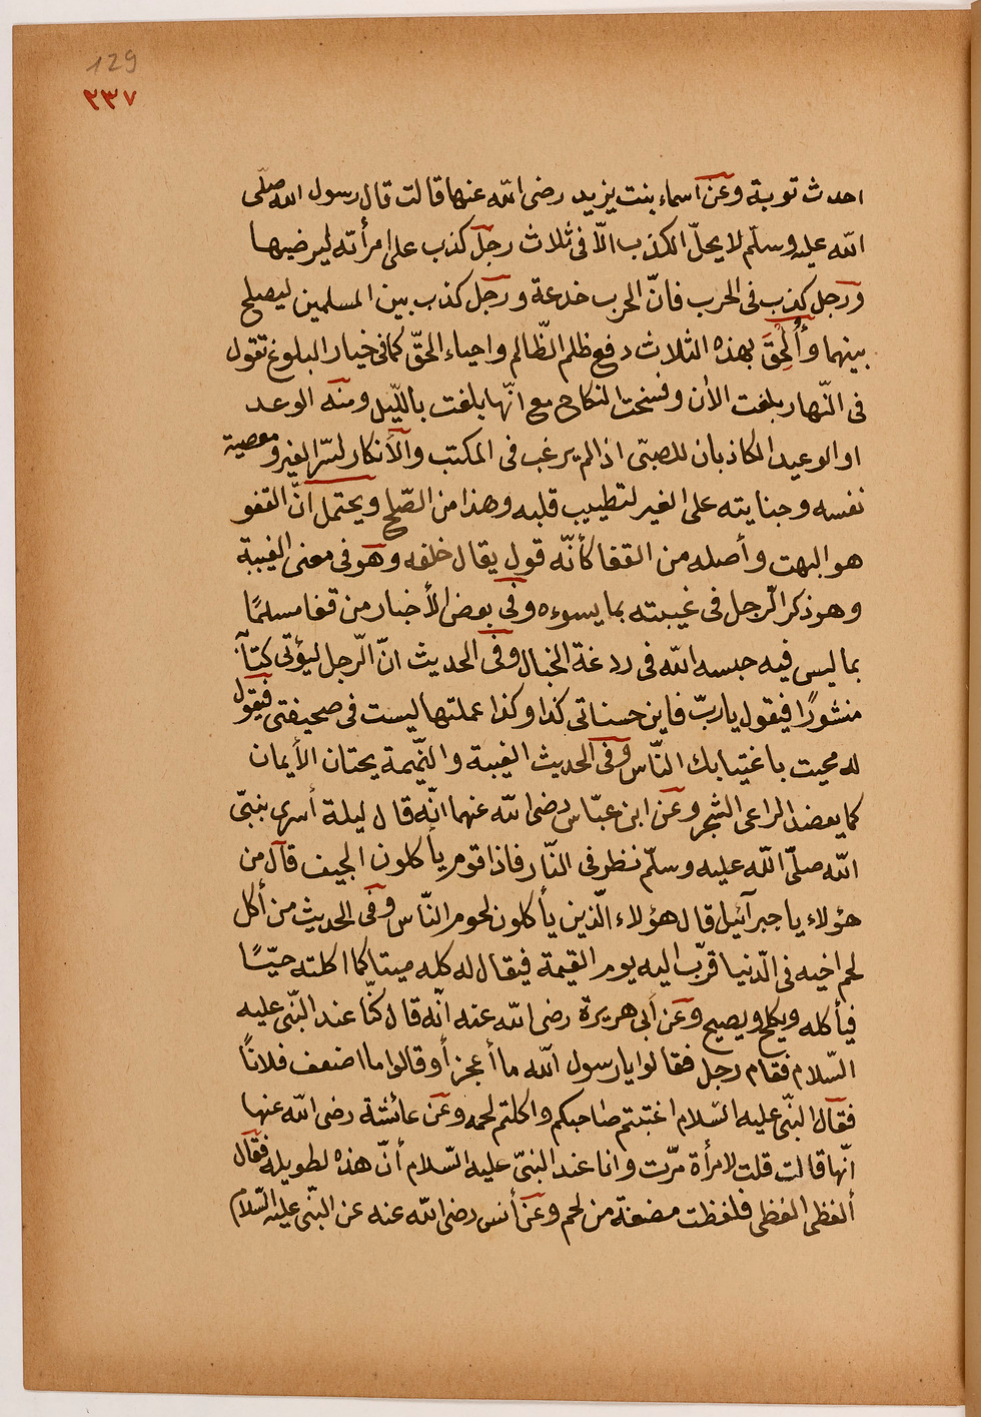 129
٢٣٧
احدث توبة وعن اسماء بنت يزيد رضى الله عنها قالت قال رسول الله صلّى
الله عليه وسلّم لا يحلّ الكذب الّا فى ثلاث رجل كذب على امرأته ليرضيها
ورجل كذب فى الحرب فانّ الحرب خدعة ورجل كذب بين المسلمين ليصلح
بينهما وأُلْحِقَ بهذه الثلاث دفع ظلم الظّالم واحياء الحقّ كما فى خيار البلوغ تقول
فى النّهار بلغت الأن وفسخت النكاح مع انّها بلغت بالليّل ومنه الوعد
او الوعيد الكاذبان للصبىّ اذا لم يرغب فى المكتب والأنكار لسّر الغير ومعصية
نفسه وجنايته على الغير لتطييب قلبه وهذا من الصّلح ويحتمل انّ القفو
هو البهت وأصله من القفا كأنّه قول يقال خلفه وهو فى معنى الغيبة
وهو ذكر الّرجل فى غيبته بما يسوءه وفى بعض الأخبار من قفا مسلمًا
بما ليس فيه حبسه الله فى ردغة الخبال وفى الحديث انّ الّرجل ليؤتى كتابه
منشورًا فيقول يا ربّ فاين حسناتى كذا وكذا عملتها ليست فى صحيفتى فيقول
له محيت باغتيابك النّاس وفى الحديث الغيبة والنّميمة يحتان الأيمان
كما يعضد الراعى الشجر وعن ابن عبّاس رضى الله عنهما انّه قال ليلة أسرى بنبىّ
الله صلّى الله عليه وسلّم نظر فى النّار فاذا قوم يأكلون الجيف قال من
هؤلاء يا جبرآئيل قال هؤلاء الّذين يأكلون لحوم النّاس وفى الحديث من أكل
لحم اخيه فى الّدنيا قرّب اليه يوم القيمة فيقال له كله ميتا كما اكلته حيّسًا
فيأكله ويكلح ويصيح وعن أبى هريرة رضى الله عنه انّه قال كنّا عند النّبى عليه
السّلام فقام رجل فقالوا يا رسول الله ما أعجز أو قالوا ما اضعف فلانًا
فقال النّبى عليه السّلام اغتبتم صاحبكم واكلتم لحمه وعن عائشة رضى الله عنها
انّها قالت قلت لامرأة مرّت وانا عند النبىّ عليه السّلام أنّ هذه لطويلة فقال
ألفظى الفظى فلفظت مضغة من لحم وعن أنس رضى الله عنه عن النّبى عليه السّلام